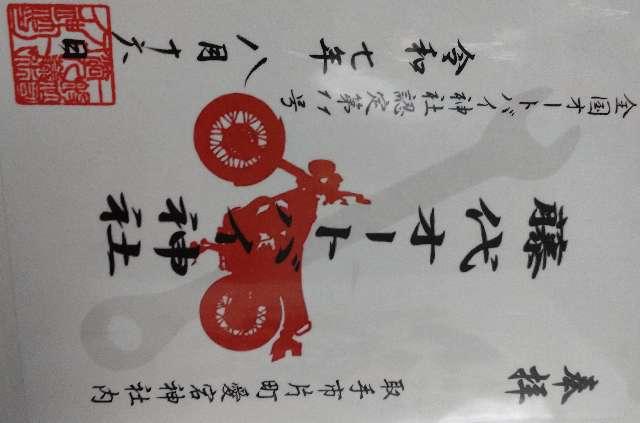 奉拝
取手市片町愛宕神社内
藤代オートバイ神社
全国オートバイ神社認定第11号
令和七年八月十六日